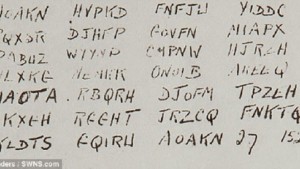 AOAKN HVPKD FNFJU YIDDC
RQXSR DJHFP GOVFN MIAPX
PABUZ WYYNP CMPNW HJRZH
NLXKG MEMKK ONOIB AKEEQ
UAOTA RBQRH DJOFM TPZEH
LKXGH RGGHT JRZCQ FNKTQ
KLDTS FQIRU AOAKN 27 152
ders : SWNS.com